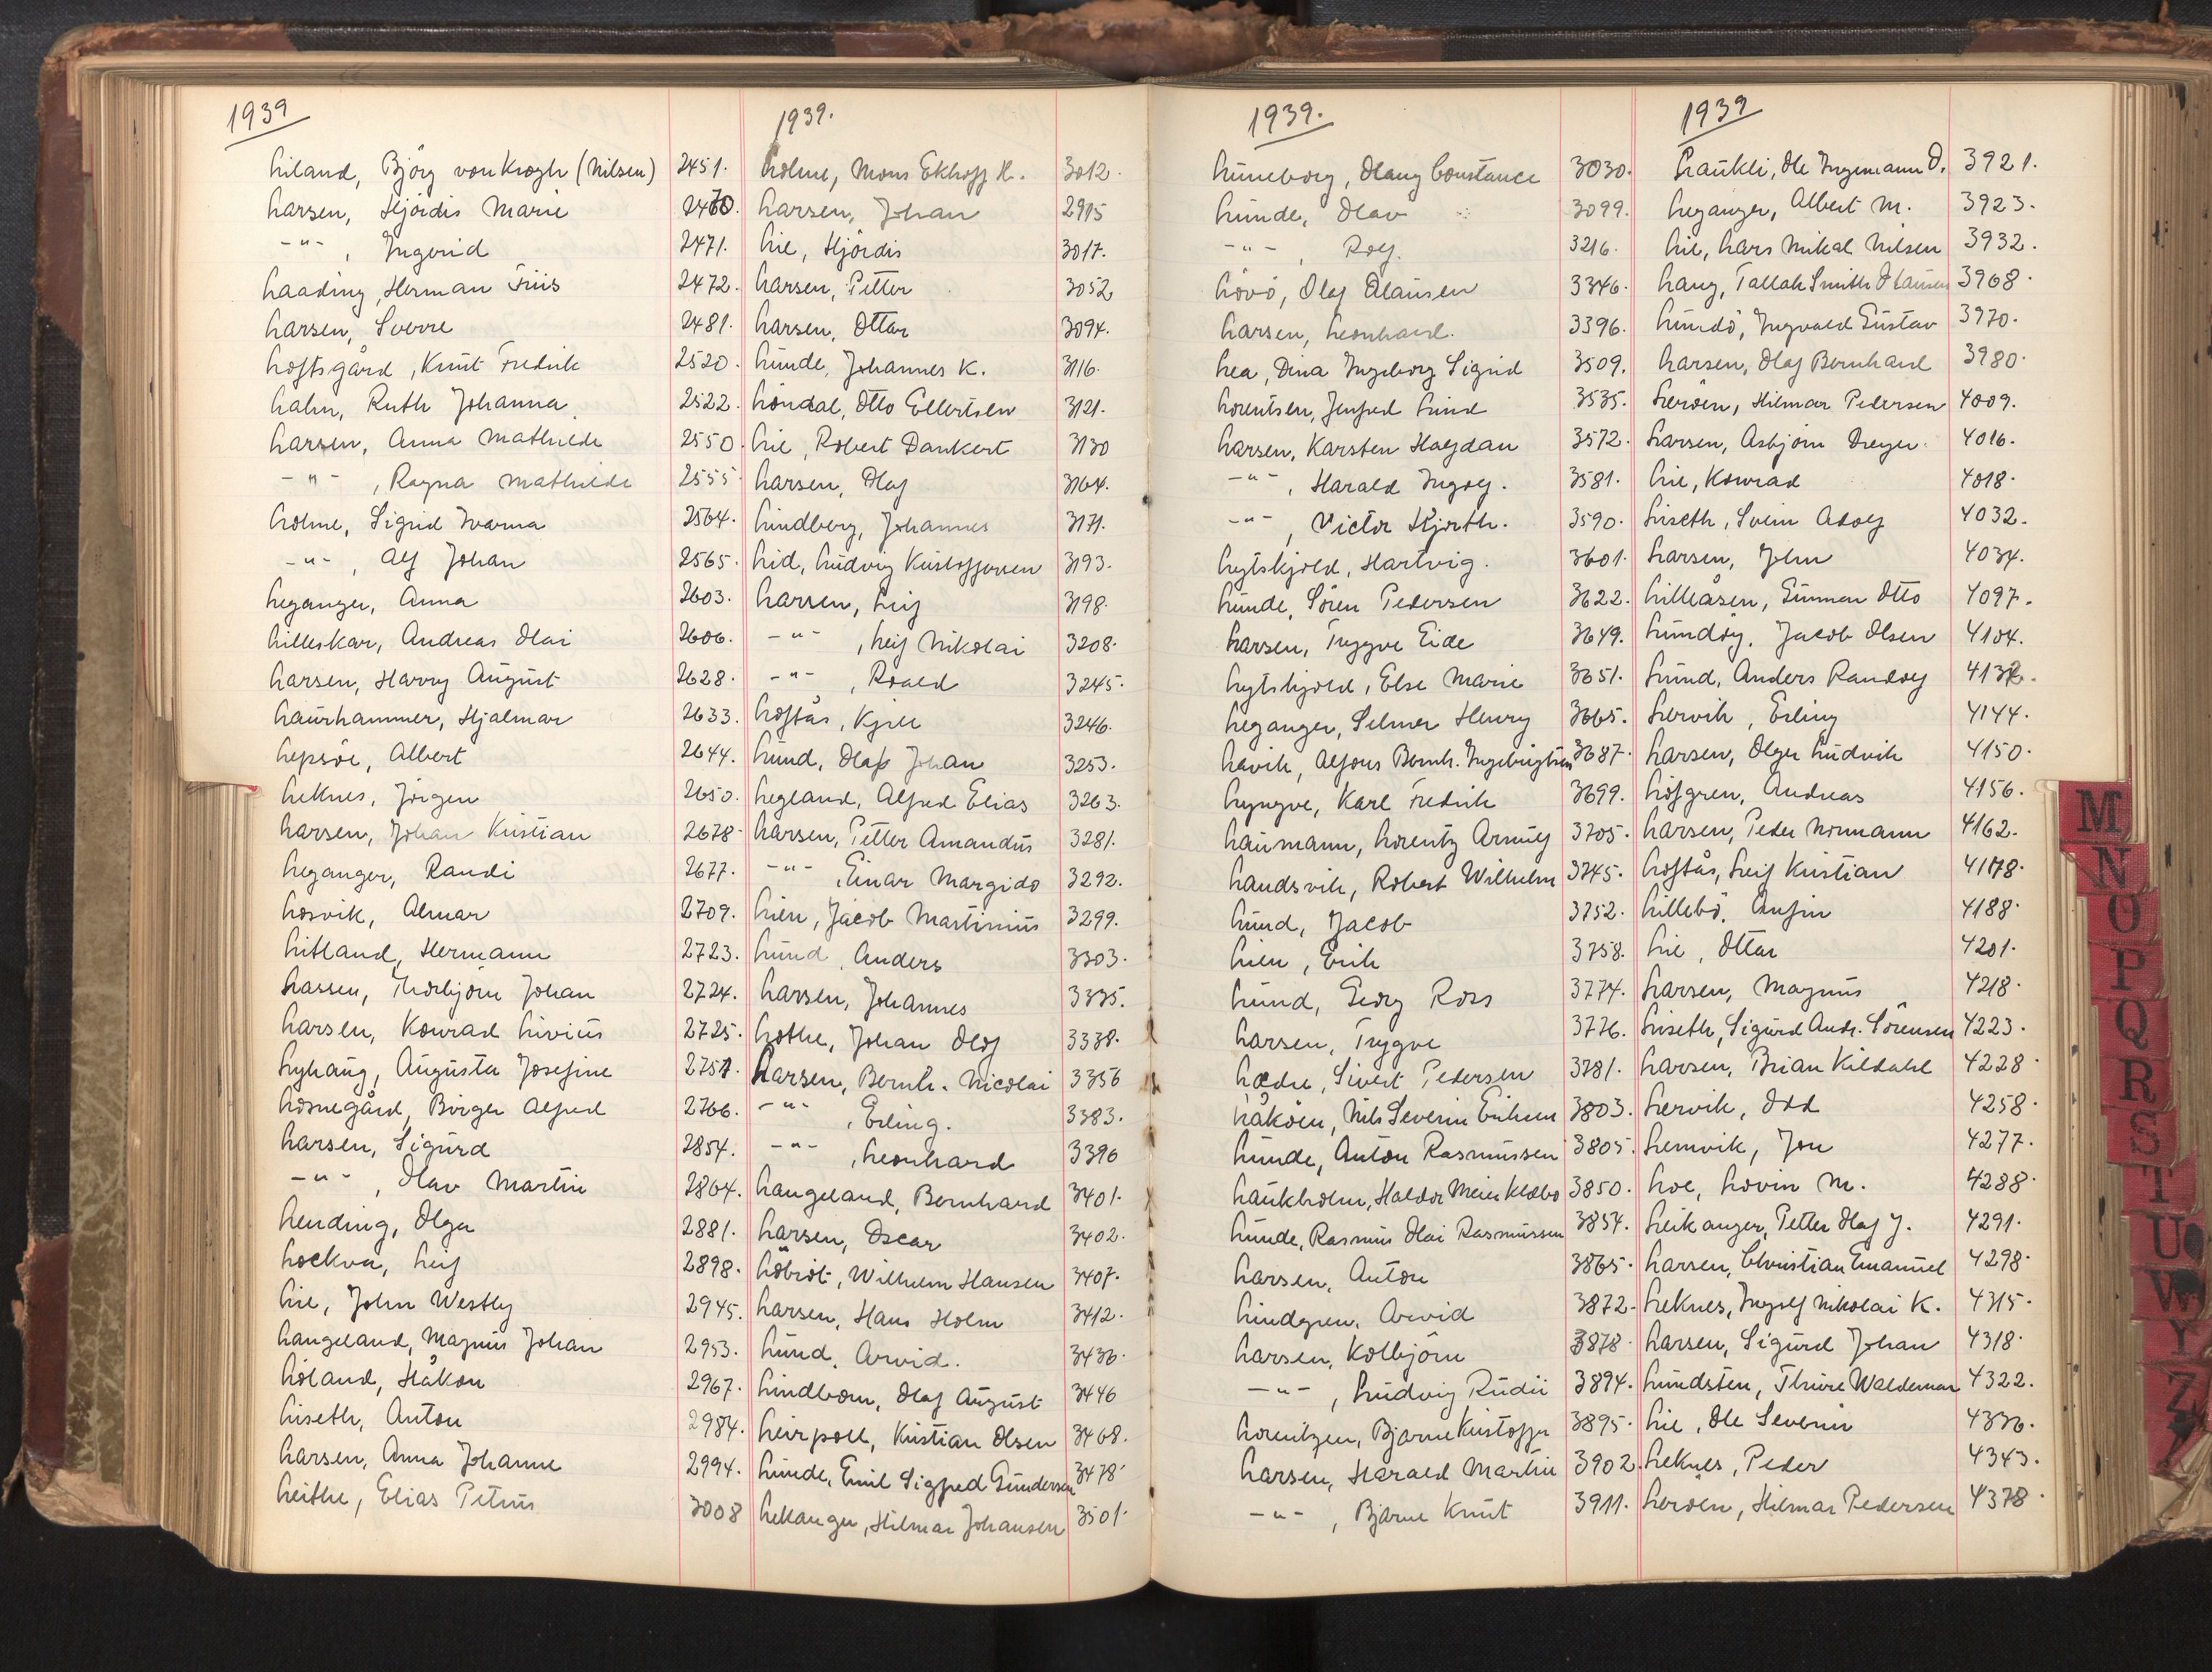 1939
Liland, Björg von Krogh (Nilsen) 2451.
Larsen, Hjördis Marie 2470.
-"-, Ingerid 2471.
Laading, Herman Friis 2472.
Larsen, Sverre 2481.
Loftsgård, Knut Fredrik 2520.
Lahn, Ruth Johanna 2522.
Larsen, Anna Mathilde 2550.
-"-, Ragna Mathilde 2555
Lolme, Sigrid Ivarna 2564.
-"-, Alf Johan 2565.
Leganger, Anna 2603.
Lilleskar, Andreas Olai 2606.
Larsen, Harry August 2628.
Laurhammer, Hjalmar 2633.
Lepsöe, Albert 2644.
Leknes, Jörgen 2650.
Larsen, Johan Kristian 2678
Leganger, Randi 2677.
Losvik, Almar 2709.
Litland, Hermann 2723.
Larsen, Thorbjörn Johan 2724.
Larsen, Konrad Livius 2725.
Lyhaug, Augusta Josefine 2751.
Losnegård, Birger Alfred 2766.
Larsen, Sigurd 2854.
-"-, Olav Martin 2864.
Lending, Olga 2881.
Lockva, Leif 2898.
Lie, John Westby 2945.
Langeland, Magnus Johan 2953.
Löland, Håkon 2967.
Liseth, Anton 2984.
Larsen, Anna Johanne 2994.
Leithe, Elias Petrus 3008
1939.
Lolme, Mons Ekhoff H. 3012.
Larsen, Johan 2915
Lie, Hjördis 3017.
Larsen, Petter 3052
Larsen, Ottar 3094.
Lunde, Johannes K. 3116.
Löndal, Otto Ellertsen 3121.
Lie, Robert Dankert 3130
Larsen, Olaf 3164.
Lindberg, Johannes 3171.
Lid, Ludvig Kristoffersen 3193.
Larsen, Leif 3198.
-"-, Leif Nikolai 3208.
-"-, Roald 3245.
Loftås, Kjell 3246.
Lund, Olaf Johan 3253.
Legland, Alfred Elias 3263.
Larsen, Petter Amandus 3281.
-"-, Einar Margido 3292.
Lien, Jacob Martinius 3299.
Lund, Anders 3303.
Larsen, Johannes 3335.
Lothe, Johan Olof 3338.
Larsen, Bernh. Nicolai 3356
-"-, Erling. 3383.
-"-, Leonhard 3396
Langeland, Bernhard 3401.
Larsen, Oscar 3402.
Löbröt, Wilhelm Hansen 3407.
Larsen, Hans Holm 3412.
Lund, Arvid. 3436.
Lindbom, Olaf August 3446
Leirpoll, Kristian Olsen 3468.
Lunde, Emil Sigfred Gundersen 3478
Lekanger, Hilmar Johansen 3501.
1939.
Luneborg, Olaug Constance 3030.
Lunde, Olav 3099.
-"-, Rolf. 3216.
Lövö, Olaf Olausen 3346.
Larsen, Leonhard. 3396.
Lea, Dina Ingeborg Sigrid 3509.
Lorentsen, Jenfred Lund 3535.
Larsen, Karsten Halfdan 3572.
-"-, Harald Ingolf. 3581.
-"-, Victor Hjorth. 3590.
Lytskjold, Hartvig. 3601.
Lunde, Sören Pedersen 3622.
Larsen, Tryggve Eide 3649.
Lytskjold, Else Marie 3651.
Leganger, Selmer Henry 3665.
Løvik, Alfons Bernh. Ingebrigtsen 3687.
Lyngve, Karl Fredrik 3699.
Laumann, Lorentz Arnulf 3705.
Landsvik, Robert Wilhelm 3745.
Lund, Jacob 3752.
Lien, Erik 3758.
Lund, Georg Ross 3774.
Larsen, Trygve 3776.
Lædre, Sivert Pedersen 3781.
Låköen, Nils Severin Eriksen 3803.
Lunde, Anton Rasmussen 3805.
Laukholm, Haldor Meier Klæbo 3850.
Lunde, Rasmus Olai Rasmussen 3854.
Larsen, Anton 3865.
Lindgren, Arvid 3872.
Larsen, Kolbjörn 3878.
-"-, Ludvig Rudii 3894.
Lorentzen, Bjarne Kristoffer 3895.
Larsen, Harald Martin 3902.
-"-, Bjarne Knut 3911.
1939
Laukli, Ole Ingemann O. 3921.
Leganger, Albert M. 3923.
Lie, Lars Mikal Nilsen 3932.
Lang, Tallak Smith 3968.
Lundö, Ingvald Gustav 3970.
Larsen, Olaf Bernhard 3980.
Leröen, Hilmar Pedersen 4009.
Larsen, Asbjörn Dreyer. 4016.
Lie, Konrad 4018.
Liseth, Svein Adolf 4032.
Larsen, John 4034.
Lilleåsen, Gunnar Otto 4097.
Lundöy, Jacob Olsen 4104.
Lund, Anders Randolf 4132.
Lervik, Erling 4144.
Larsen, Olger Ludvik 4150.
Löfgren, Andreas 4156.
Larsen, Peder Normann 4162.
Loftås, Leif Kristian 4178.
Lillebö, Anfin 4188.
Lie, Ottar 4201.
Larsen, Magnus 4218.
Liseth, Sigurd Andr. Sörensen 4223.
Larsen, Brian Kildahl 4228
Lervik, Odd 4258
Lemvik, Jon 4277.
Loe, Lovin M. 4288
Leikanger, Petter Olaf J. 4291.
Larsen, Christian Emanuel 4298.
Leknes, Ingolf Nikolai K. 4315.
Larsen, Sigurd Johan 4318.
Lundsten, Thure Waldemar 4322.
Lie, Ole Severin 4336.
Leknes, Peder 4343.
Leröen, Hilmar Pedersen 4378
M
N
O
P
Q
R
S
T
U
W
Y
Z